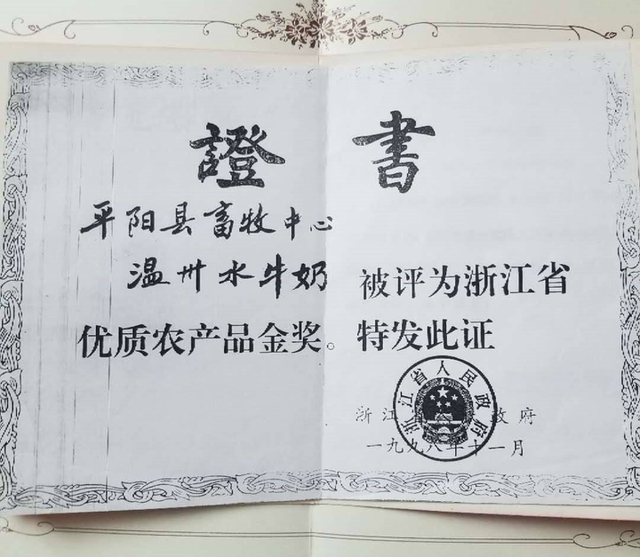 證書
平阳县畜牧中心
温州水牛奶 被评为浙江省
优质农产品金奖。特发此证
浙江省人民政府
浙江 政府
一九九八年十一月